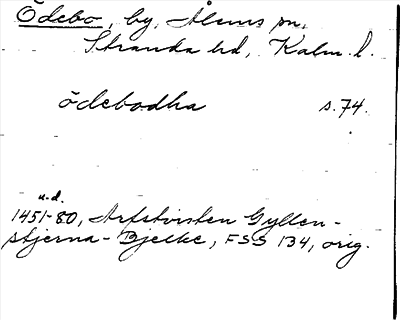 Ödebo, by, Ålems sn,
Stranda hd, Kalm. l.
ödebodha s. 74.
u. d.
1451-80, Arfstvisten Gyllen-
stjerna - Bjelke, FSS 134, orig.